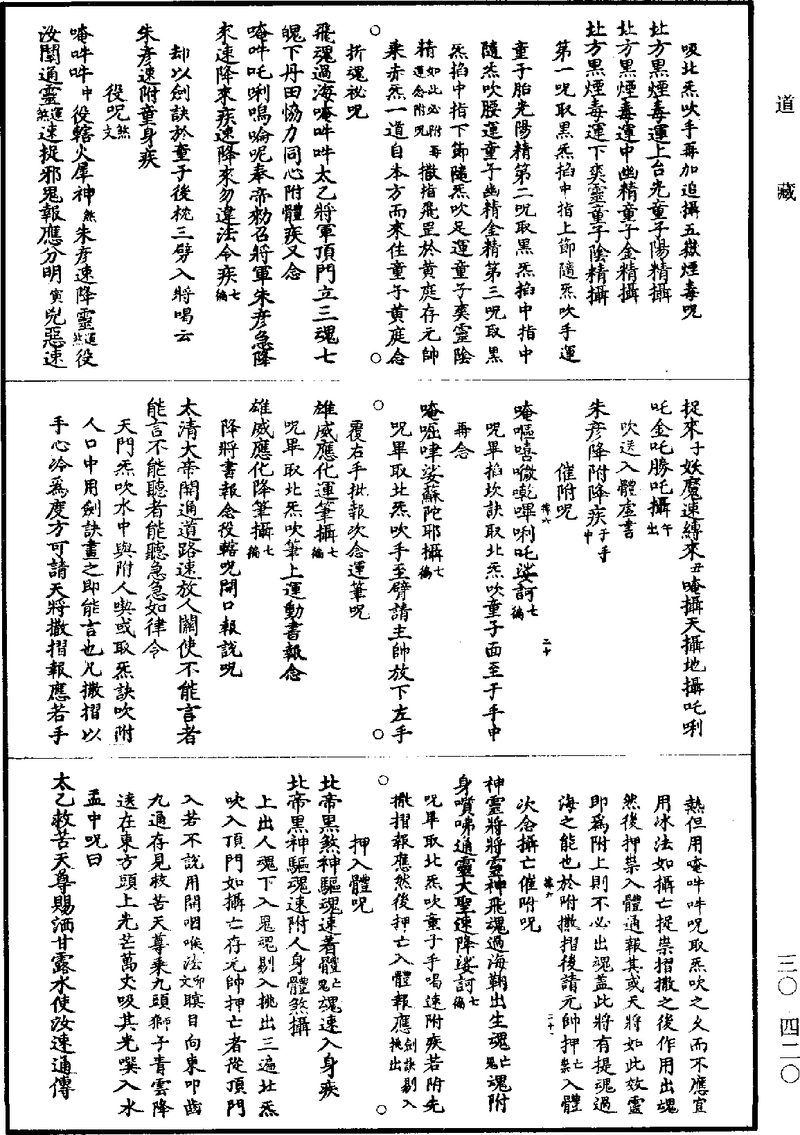 道藏
三〇 四二〇
吸北炁吹手再加追攝五嶽煙毒呪
北方黑煙毒運上台光童子陽精攝
北方黑煙毒運中幽精童子金精攝
北方黑煙毒運下奕靈童子陰精攝
第一呪取黑炁掐中指上節隨炁吹手運
童子胎光陽精第二呪取黑炁掐中指中
隨炁吹腰運童子幽精金精第三呪取黑
炁掐中指下節隨炁吹足運童子奕靈陰
精如此必附再運念附呪撒指飛罡於黄庭存元帥
乘赤炁一道自本方而來住童子黄庭念
折魂祕呪
飛魂過海唵吽吽太乙將軍頂門立三魂七
魄下丹田恊力同心附體疾又念
唵吽吒唎嗚呢奉帝勑召將軍朱彦急降
來速降來疾速降來勿違法令疾七徧
却以劍訣於童子後枕三劈入將喝云
朱彦速附童身疾
役呪煞文
唵吽吽中役轄火犀神煞朱彦速降靈運煞役
汝閞通靈運煞速捉邪鬼報應分明寅兇惡速
捉來子妖魔速縛來丑唵攝天攝地攝吒唎
吒金吒勝吒攝午出
吹送入體虛書
朱彦降附降疾子午中
催附呪
唵嘔嘻㗲嘰嗶唎吒娑訶七徧
呪畢掐坎訣取北炁吹童子面至于手中
再念
唵啒㖀娑蘇陀耶攝七徧
呪畢取北炁吹手至臂請主帥放下左手
覆右手批報次念運筆呪
雄威應化運筆攝七徧
呪畢取北炁吹筆上運動書報念
雄威應化降筆攝七徧
降將書報念役轄呪開口報說呪
太清大帝開通道路速放人關使不能言者
能言不能聽者能聽急急如律令
天門炁吹水中與附人喫或取炁訣吹附
人口中用劍訣畫之即能言也凡撒摺以
手心冷爲度方可請天將撒摺報應若手
熱但用唵吽吽呪取炁吹之久而不應宜
用氷法如攝亡捉祟摺撒之後作用出魂
然後押祟入體通報其或天將如此效靈
即爲附上則不必出魂蓋此將有提魂過
海之能也於附撒摺後請元帥押亡祟入體
次念攝亡催附呪
神靈將將靈神飛魂過海鞠出生魂亡鬼魂附
身嚩㖇通靈大聖速降娑訶七徧
呪畢取北炁吹童子手喝速附疾若附先
撒摺報應然後押亡入體報應劍訣剔入挑出
押入體呪
北帝黑煞神驅魂速着體亡鬼魂速入身疾
北帝黑神驅魂速附人身體煞攝
上出人魂下入鬼魂剔入挑出三遍北炁
吹入頂門如攝亡存元帥押亡者從頂門
入若不說用開咽喉法文卿瞑目向東叩齒
九通存見救苦天尊乘九頭獅子青雲降
遶在東方頭上光芒萬丈吸其光噀入水
盂中呪曰
太乙救苦天尊賜洒甘露水使汝速通傳